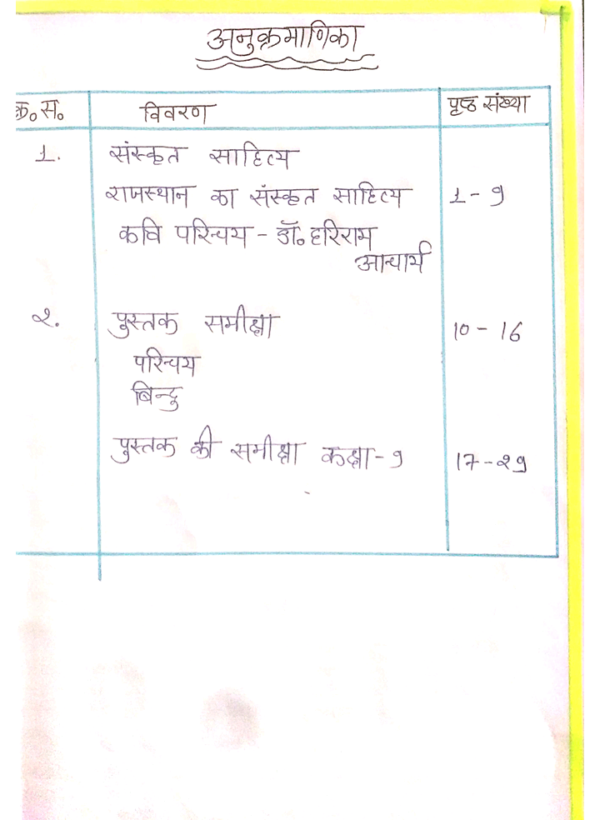 अनुक्रमाणिका
क्र.स. विवरण पृष्ठ संख्या
1. संस्कृत साहित्य
राजस्थान का संस्कृत साहित्य 1-9
कवि परिचय - डॉ. हरिराम
आचार्य
२. पुस्तक समीक्षा 10-16
परिचय
बिन्दु
पुस्तक की समीक्षा कक्षा-9 17-२9